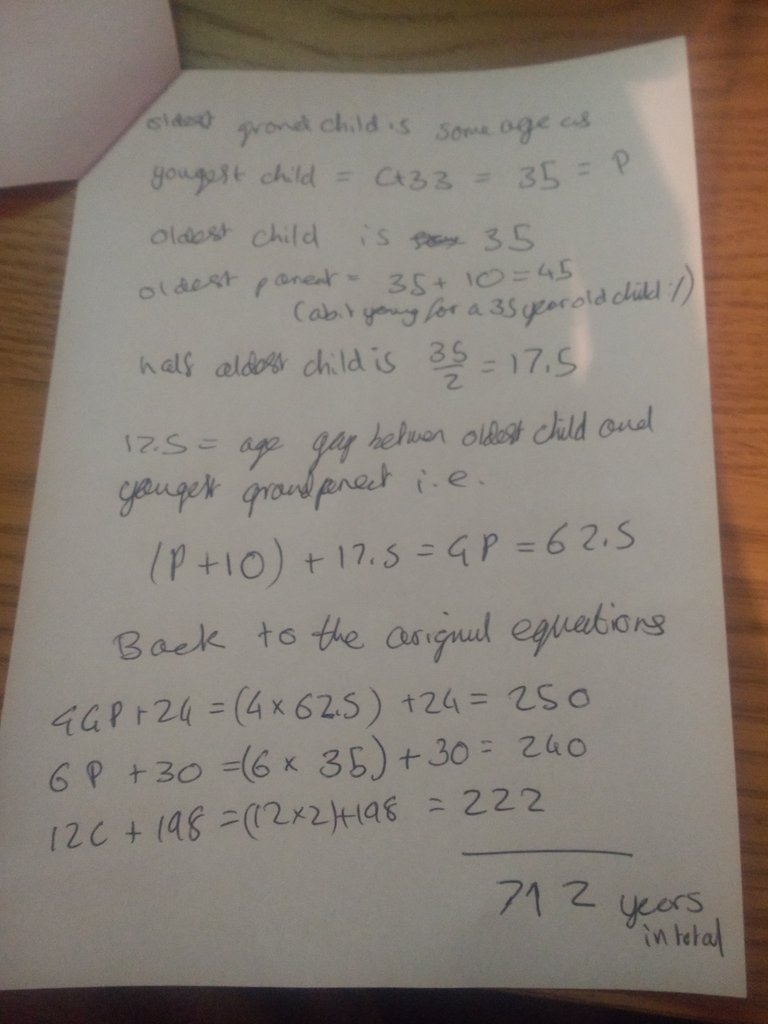 oldest grand child is same age as
yougest child = C+33 = 35 = P
oldest child is 35
oldest parent = 35 + 10 = 45
(abit young for a 35 year old child :/)
half oldest child is 35/2 = 17.5
17.5 = age gap betwen oldest child and
yougest grandparent i.e.
(P+10) + 17.5 = GP = 62.5
Back to the original equations
4GP+24 = (4 x 62.5) +24 = 250
6P + 30 = (6 x 35) + 30 = 240
12C + 198 = (12x2)+198 = 222
712 years
in total